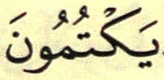 يَكْتُمُونَ